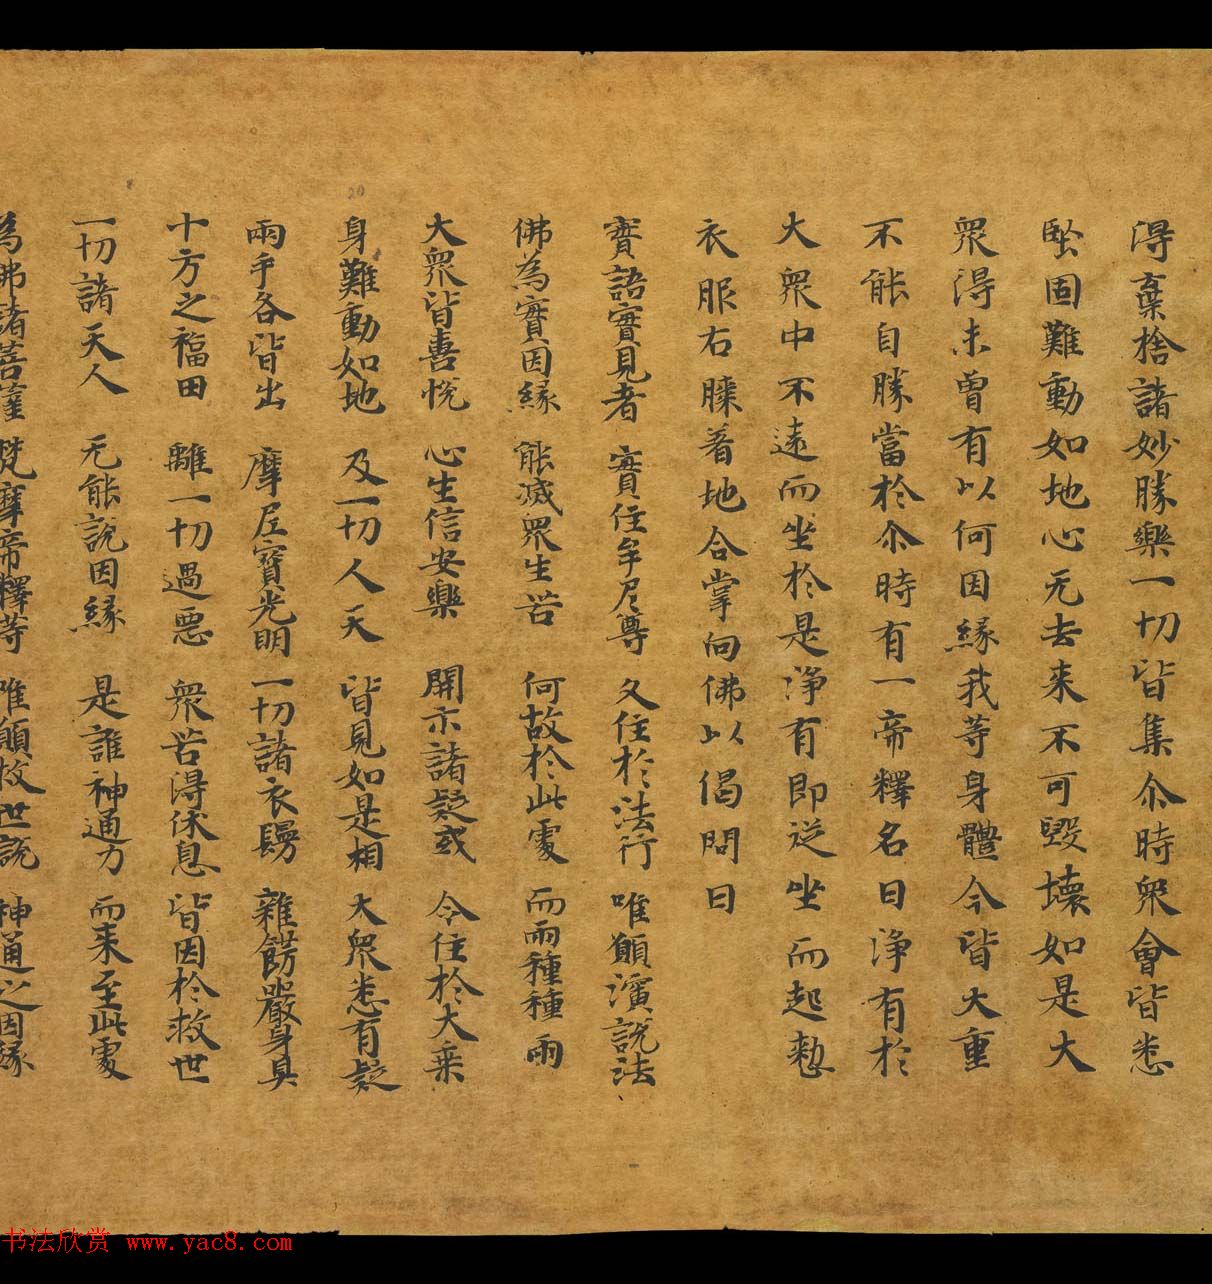 得棄捨諸妙勝樂一切皆集尒時衆會皆悉
堅固難動如地心无去来不可毀壞如是大
衆得未曾有以何因緣我等身體今皆大重
不能自勝當於尒時有一帝釋名曰淨有於
大衆中不遠而坐於是淨有即從坐而起整
衣服右膝著地合掌向佛以偈問曰
實語實見者 實住牟尼尊 久住於法行 唯願演説法
佛為實因緣 能滅衆生苦 何故於此處 而雨種種雨
大衆皆喜悅 心生信安樂 開示諸疑或 令住於大乗
身難動如地 及一切人天 皆見如是相 大衆悉有疑
兩手各皆出 摩尼寶光明 一切諸衣鬘 雜餝嚴身具
十方之福田 離一切過惡 衆苦得休息 皆因於救世
一切諸天人 无能説因緣 是誰神通力 而来至此處
為佛諸菩薩 梵摩帝釋等 唯願救世説 神通之因緣
20
书法欣赏 www.yac8.com